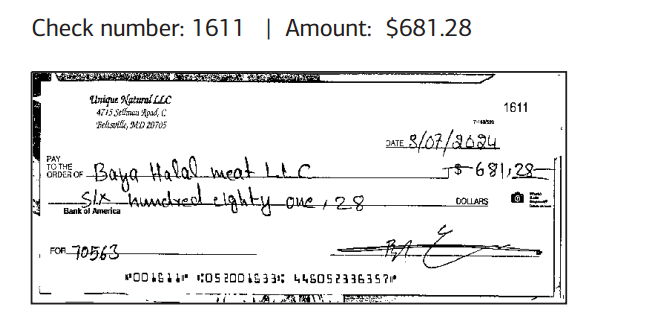 Check number: 1611 | Amount: $681.28
Unique Natural LLC
1611
4715 Sellman Road, C
Beltsville, MD 20705
DATE 8/07/2024
PAY
TO THE
ORDER OF Baya Halal meat LLC $ 681,28
Six hundred eighty one, 28 DOLLARS
Bank of America
FOR 70563
⑈001611⑈ ⑆052001633⑆ 446052336357⑈